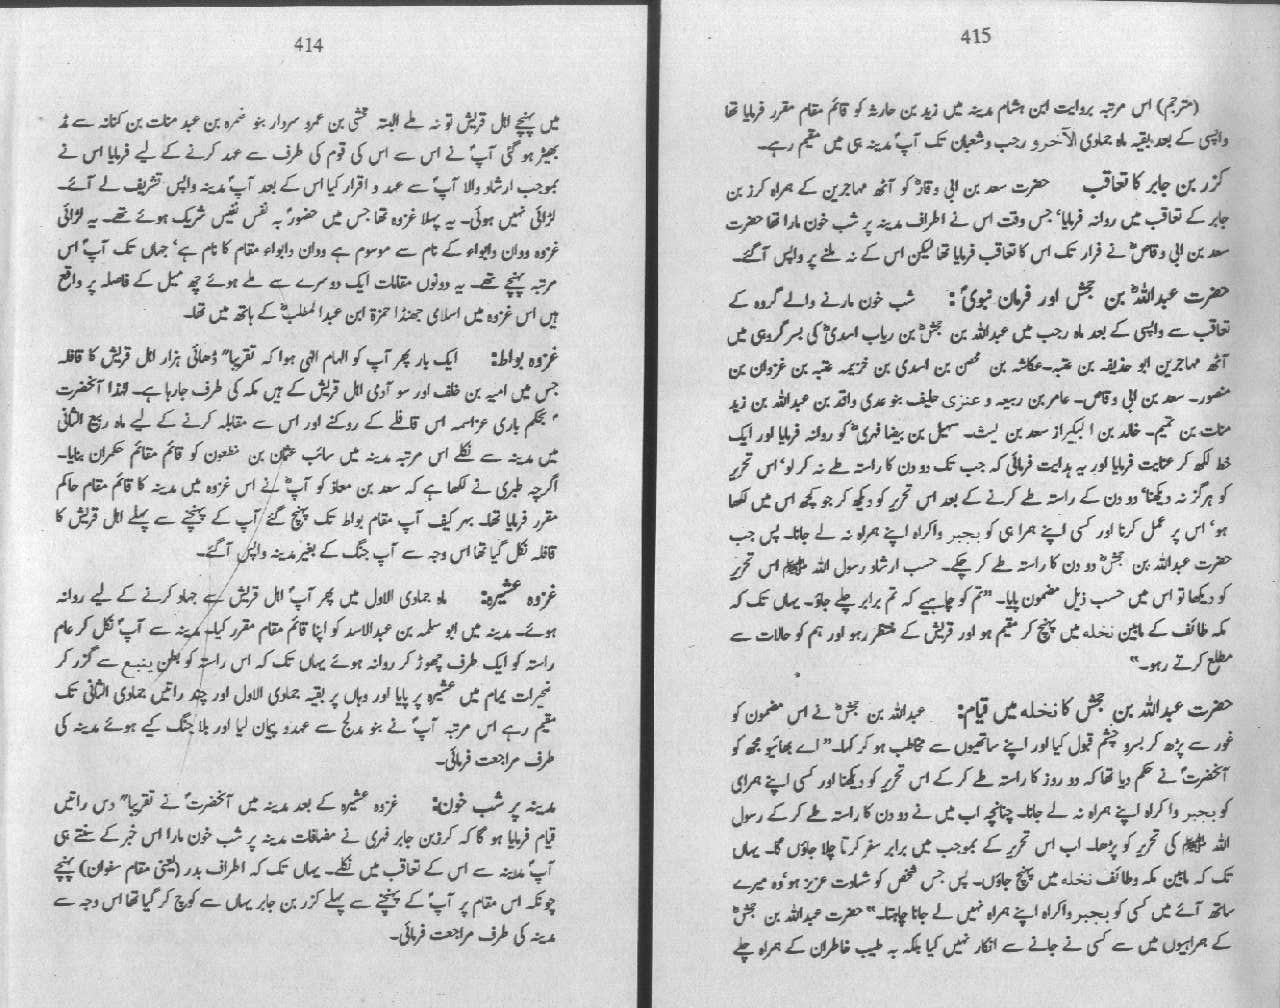 414
میں پہنچے اہل قریش تو نہ ملے البتہ مخشی بن عمرو سردار بنو ضمرہ بن عبد منات بن کنانہ سے مڈ
بھیڑ ہو گئی آپؐ نے اس سے اس کی قوم کی طرف سے عہد کرنے کے لیے فرمایا اس نے
بموجب ارشاد والا آپؐ سے عہد و اقرار کیا اس کے بعد آپؐ مدینہ واپس تشریف لے آئے۔
لڑائی نہیں ہوئی۔ یہ پہلا غزوہ تھا جس میں حضورؐ بہ نفس نفیس شریک ہوئے تھے۔ یہ لڑائی
غزوہ ودان وابواء کے نام سے موسوم ہے ودان وابواء مقام کا نام ہے، جہاں تک آپؐ اس
مرتبہ پہنچے تھے۔ یہ دونوں مقامات ایک دوسرے سے ملے ہوئے چھ میل کے فاصلہ پر واقع
ہیں اس غزوہ میں اسلامی جھنڈا حمزۃ ابن عبدالمطلبؓ کے ہاتھ میں تھا۔
غزوہ بواط: ایک بار پھر آپ کو الہام الٰہی ہوا کہ تقریباً ڈھائی ہزار اہل قریش کا قافلہ
جس میں امیہ بن خلف اور سو آدمی اہل قریش کے ہیں مکہ کی طرف جارہا ہے۔ لہٰذا آنحضرت
ؐ بحکم باری عزاسمہ اس قافلے کے روکنے اور اس سے مقابلہ کرنے کے لیے ماہ ربیع الثانی
میں مدینہ سے نکلے اس مرتبہ مدینہ میں سائب عثمان بن مظعون کو قائم مقائم حکمران بنایا۔
اگرچہ طبری نے لکھا ہے کہ سعد بن معاذ کو آپؐ نے اس غزوہ میں مدینہ کا قائم مقام حاکم
مقرر فرمایا تھا۔ بہر کیف آپ مقام بواط تک پہنچ گئے آپ کے پہنچنے سے پہلے اہل قریش کا
قافلہ نکل گیا تھا اس وجہ سے آپ جنگ کے بغیر مدینہ واپس آگئے۔
غزوہ عشیرہ: ماہ جمادی الاول میں پھر آپؐ اہل قریش سے جہاد کرنے کے لیے روانہ
ہوئے۔ مدینہ میں ابو سلمہ بن عبدالاسد کو اپنا قائم مقام مقرر کیا۔ مدینہ سے آپؐ نکل کر عام
راستہ کو ایک طرف چھوڑ کر روانہ ہوئے یہاں تک کہ اس راستہ کو بطن ینبع سے گزر کر
یمام میں عشیرہ پر پایا اور وہاں پر بقیہ جمادی الاول اور چند راتیں جمادی الثانی تک
مقیم رہے اس مرتبہ آپؐ نے بنو مدلج سے عہد و پیمان لیا اور بلا جنگ کیے ہوئے مدینہ کی
طرف مراجعت فرمائی۔
مدینہ پر شب خون: غزوہ عشیرہ کے بعد مدینہ میں آنحضرتؐ نے تقریباً دس راتیں
قیام فرمایا ہو گا کہ کرزبن جابر فہری نے مضافات مدینہ پر شب خون مارا اس خبر کے سنتے ہی
آپؐ مدینہ سے اس کے تعاقب میں نکلے۔ یہاں تک کہ اطراف بدر (یعنی مقام سفوان) پہنچے
چونکہ اس مقام پر آپؐ کے پہنچنے سے پہلے کزر بن جابر یہاں سے کوچ کر گیا تھا اس وجہ سے
مدینہ کی طرف مراجعت فرمائی۔
415
(مترجم) اس مرتبہ بروایت ابن ہشام مدینہ میں زید بن حارثہ کو قائم مقام مقرر فرمایا تھا
واپسی کے بعد بقیہ ماہ جمادی الآخر و رجب و شعبان تک آپؐ مدینہ ہی میں مقیم رہے۔
کزر بن جابر کا تعاقب حضرت سعد بن ابی وقاصؓ کو آٹھ مہاجرین کے ہمراہ کرز بن
جابر کے تعاقب میں روانہ فرمایا، جس وقت اس نے اطراف مدینہ پر شب خون مارا تھا حضرت
سعد بن ابی وقاصؓ نے فرار تک اس کا تعاقب فرمایا تھا لیکن اس کے نہ ملنے پر واپس آگئے۔
حضرت عبداللہؓ بن جحش اور فرمان نبویؐ: شب خون مارنے والے گروہ کے
تعاقب سے واپسی کے بعد ماہ رجب میں عبداللہ بن جحشؓ بن رباب اسدیؓ کی بسر گروہی میں
آٹھ مہاجرین ابو حذیفہ بن عتبہ۔ عکاشہ بن محصن بن اسدی بن خزیمہ عتبہ بن غزوان بن
منصور۔ سعد بن ابی وقاص۔ عامر بن ربیعہ و عنزی حلیف بنو عدی واقد بن عبداللہ بن زید
منات بن تمیم۔ خالد بن البکیراز سعد بن لیث۔ سہیل بن بیضا فہریؓ کو روانہ فرمایا اور ایک
خط لکھ کر عنایت فرمایا اور یہ ہدایت فرمائی کہ جب تک دو دن کا راستہ طے نہ کر لو، اس تحریر
کو ہرگز نہ دیکھنا، دو دن کے راستہ طے کرنے کے بعد اس تحریر کو دیکھ کر جو کچھ اس میں لکھا
ہو، اس پر عمل کرنا اور کسی اپنے ہمرا ہی کو بجبر واکراہ اپنے ہمراہ نہ لے جانا۔ پس جب
حضرت عبداللہ بن جحشؓ دو دن کا راستہ طے کر چکے۔ حسب ارشاد رسول اللہ ﷺ اس تحریر
کو دیکھا تو اس میں حسب ذیل مضمون پایا۔ ”تم کو چاہیے کہ تم برابر چلے جاؤ۔ یہاں تک کہ
مکہ طائف کے مابین نخلہ میں پہنچ کر مقیم ہو اور قریش کے منتظر رہو اور ہم کو حالات سے
مطلع کرتے رہو۔“
حضرت عبداللہ بن جحش کا نخلہ میں قیام: عبداللہ بن جحشؓ نے اس مضمون کو
غور سے پڑھ کر بسرو چشم قبول کیا اور اپنے ساتھیوں سے مخاطب ہو کر کہا۔ ”اے بھائیو مجھ کو
آنحضرتؐ نے حکم دیا تھا کہ دو روز کا راستہ طے کر کے اس تحریر کو دیکھنا اور کسی اپنے ہمراہی
کو بجبر واکراہ اپنے ہمراہ نہ لے جانا۔ چنانچہ اب میں نے دو دن کا راستہ طے کر کے رسول
اللہ ﷺ کی تحریر کو پڑھا۔ اب اس تحریر کے بموجب میں برابر سفر کرتا چلا جاؤں گا۔ یہاں
تک کہ مابین مکہ وطائف نخلہ میں پہنچ جاؤں۔ پس جس شخص کو شہادت عزیز ہو وہ میرے
ساتھ آئے میں کسی کو بجبر واکراہ اپنے ہمراہ نہیں لے جانا چاہتا۔“ حضرت عبداللہ بن جحشؓ
کے ہمراہیوں میں سے کسی نے جانے سے انکار نہیں کیا بلکہ بہ طیب خاطران کے ہمراہ چلے